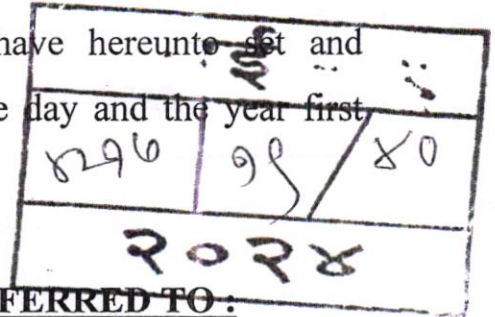 have hereunto set and
e day and the year first
४२१७ १९/४०
२०२४
FERRED TO :